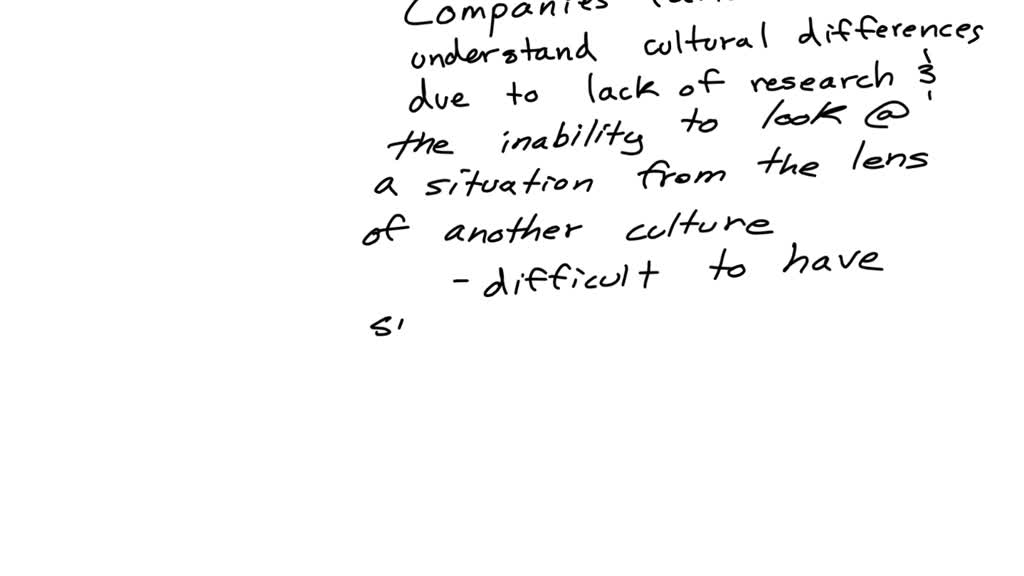 Companies
understand cultural differences
due to lack of research &
the inability to look @
a situation from the lens
of another culture
- difficult to have